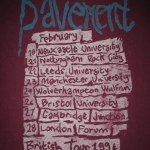 pavement
February
18 Newcastle University
20 Nottingham Rock City
21 Leeds University
23 Manchester University
24 Wolverhampton Wulfrun
26 Bristol University
27 Cambridge Junction
28 London Forum
British Tour 199